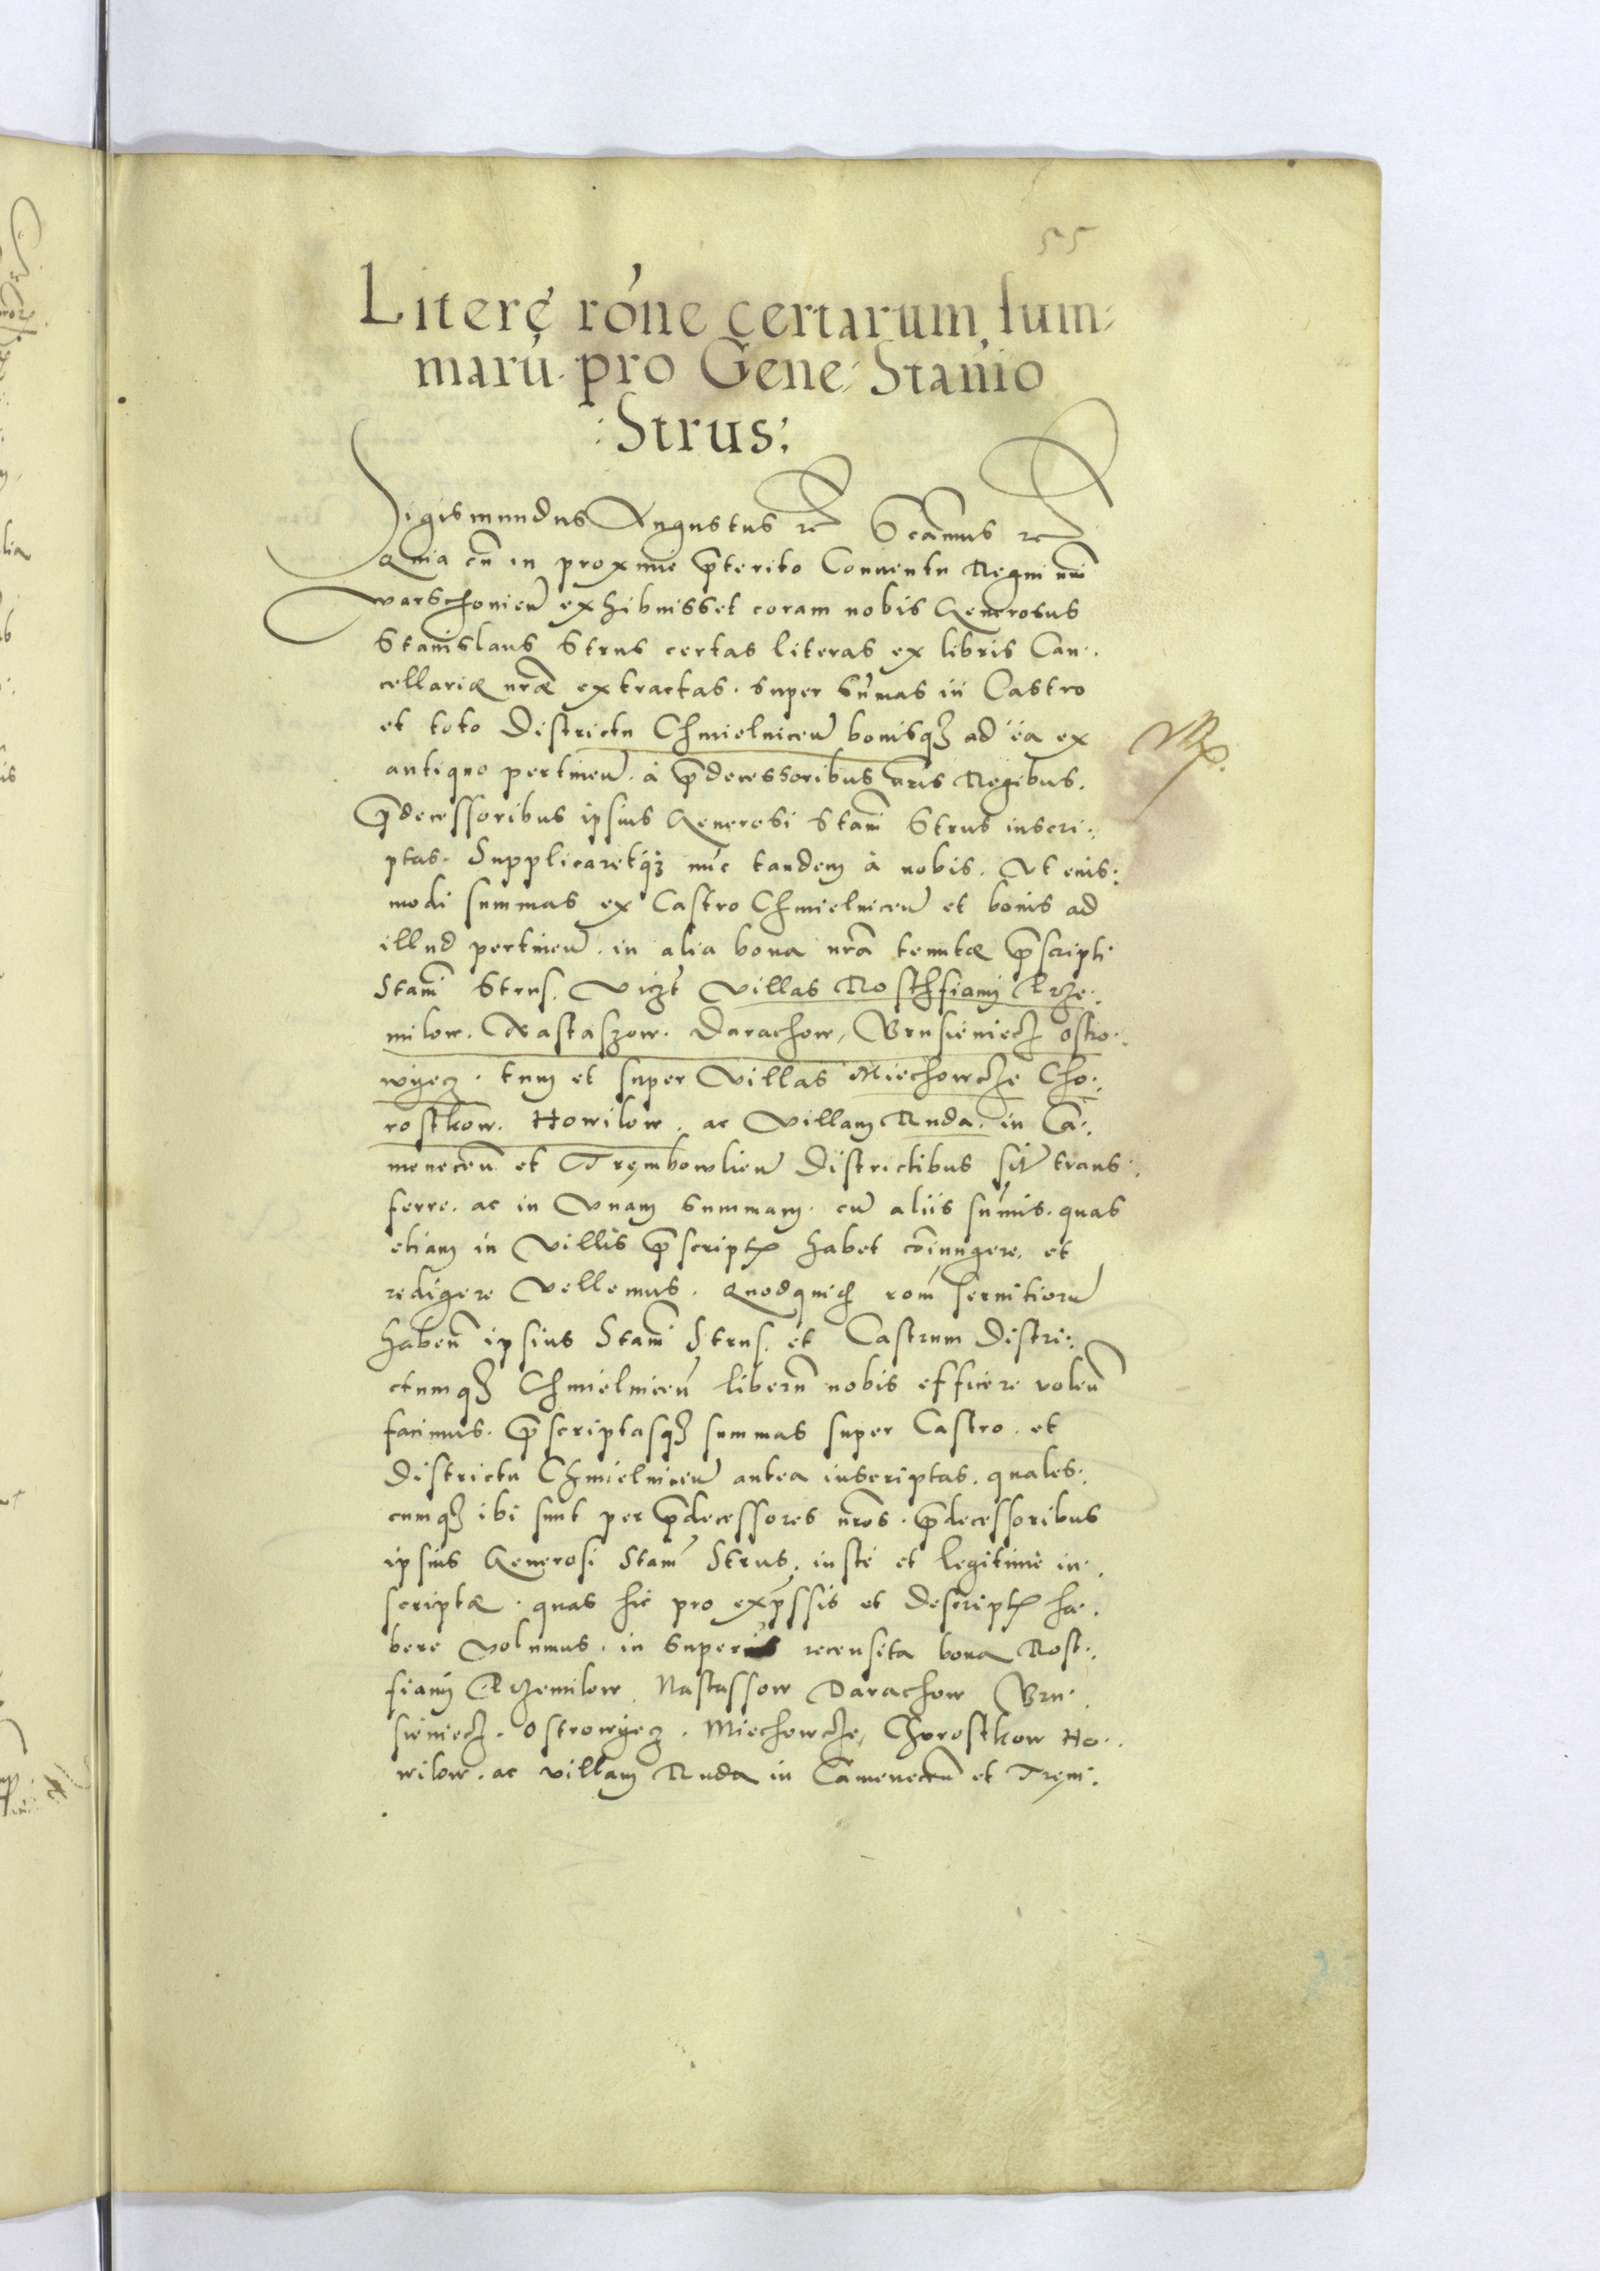 55
Literę rõne certarum sum=
marũ pro Gene: Stanio
:Strus:
Sigismundus Augustus etc Vcãmus etc
Quia cũ in proxime p̃terito Conuentu Regni nr̃i
warschouieñ exhibuisset coram nobis Generosus
Stanislaus Strus certas literas ex libris Can:
cellariæ nr̃æ extractas. super sum̃as in Castro
et toto Districtu Chmielniceñ bonisqꝫ ad ea ex
antiquo pertineñ. à p̃decessoribus nr̃is Regibus.
p̃decessoribus ipsius Generosi Stani Strus inscri:
ptas. Supplicaretqꝫ nũc tandem à nobis. Vt eius:
modi summas ex Castro Chmielniceñ et bonis ad
illud pertineñ. in alia bona nr̃a tenutæ p̃scripti
Stani Strus. Viczt Villas Rosthfianij Krze:
milow. Nastaszow. Darachow, Brusieniecz ostro:
wijecz. tum et super Villas Miechowcze Cho:
rostkow. Howilow. ac Villam Ruda. in Ca:
meneceñ et Trembowlieñ Districtibus siť trans:
ferre. ac in Vnam summam. cũ aliis sum̃is. quas
etiam in Villis p̃scriptis habet cõiungere, et
redigere Vellemus. Quodquidem rõm seruitiorũ
habeñ ipsius Stani Strus. et Castrum Distri:
ctumqꝫ Chmielniceñ liberũ nobis efficere voleñ
facimus. p̃scriptasqꝫ summas super Castro. et
Districtu Chmielniceñ antea inscriptas. quales:
cumqꝫ ibi sunt per p̃decessores nr̃os. p̃decessoribus
ipsius Generosi Stani Strus. iuste et legitime in:
scriptæ. quas hic pro exp̃ssis et descriptis ha:
bere volumus. in super recensita bona Rost:
fianij Krzemilow. Nastassow Darachow Bru:
sieniecz. Ostrowijecz. Miechowcze, Chorostkow Ho:
wilow. ac villam Ruda in Cameneceñ et Trem: